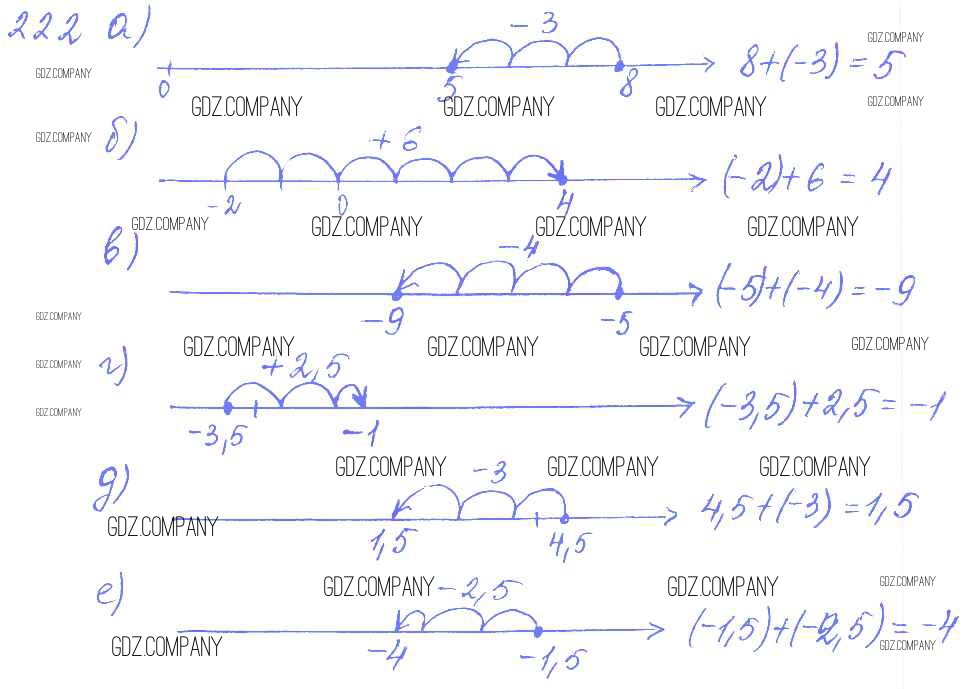 222 а) -3 GDZ.COMPANY
GDZ.COMPANY 0 5 8 8+(-3)=5
GDZ.COMPANY GDZ.COMPANY GDZ.COMPANY GDZ.COMPANY
GDZ.COMPANY б) +6
-2 0 4 (-2)+6=4
GDZ.COMPANY GDZ.COMPANY GDZ.COMPANY GDZ.COMPANY
в) -4
-9 -5 (-5)+(-4)=-9
GDZ.COMPANY
GDZ.COMPANY GDZ.COMPANY GDZ.COMPANY GDZ.COMPANY
GDZ.COMPANY г) +2,5
GDZ.COMPANY -3,5 -1 (-3,5)+2,5=-1
GDZ.COMPANY GDZ.COMPANY GDZ.COMPANY
д) -3
GDZ.COMPANY 1,5 4,5 4,5+(-3)=1,5
е) GDZ.COMPANY -2,5 GDZ.COMPANY GDZ.COMPANY
-4 -1,5 (-1,5)+(-2,5)=-4
GDZ.COMPANY GDZ.COMPANY